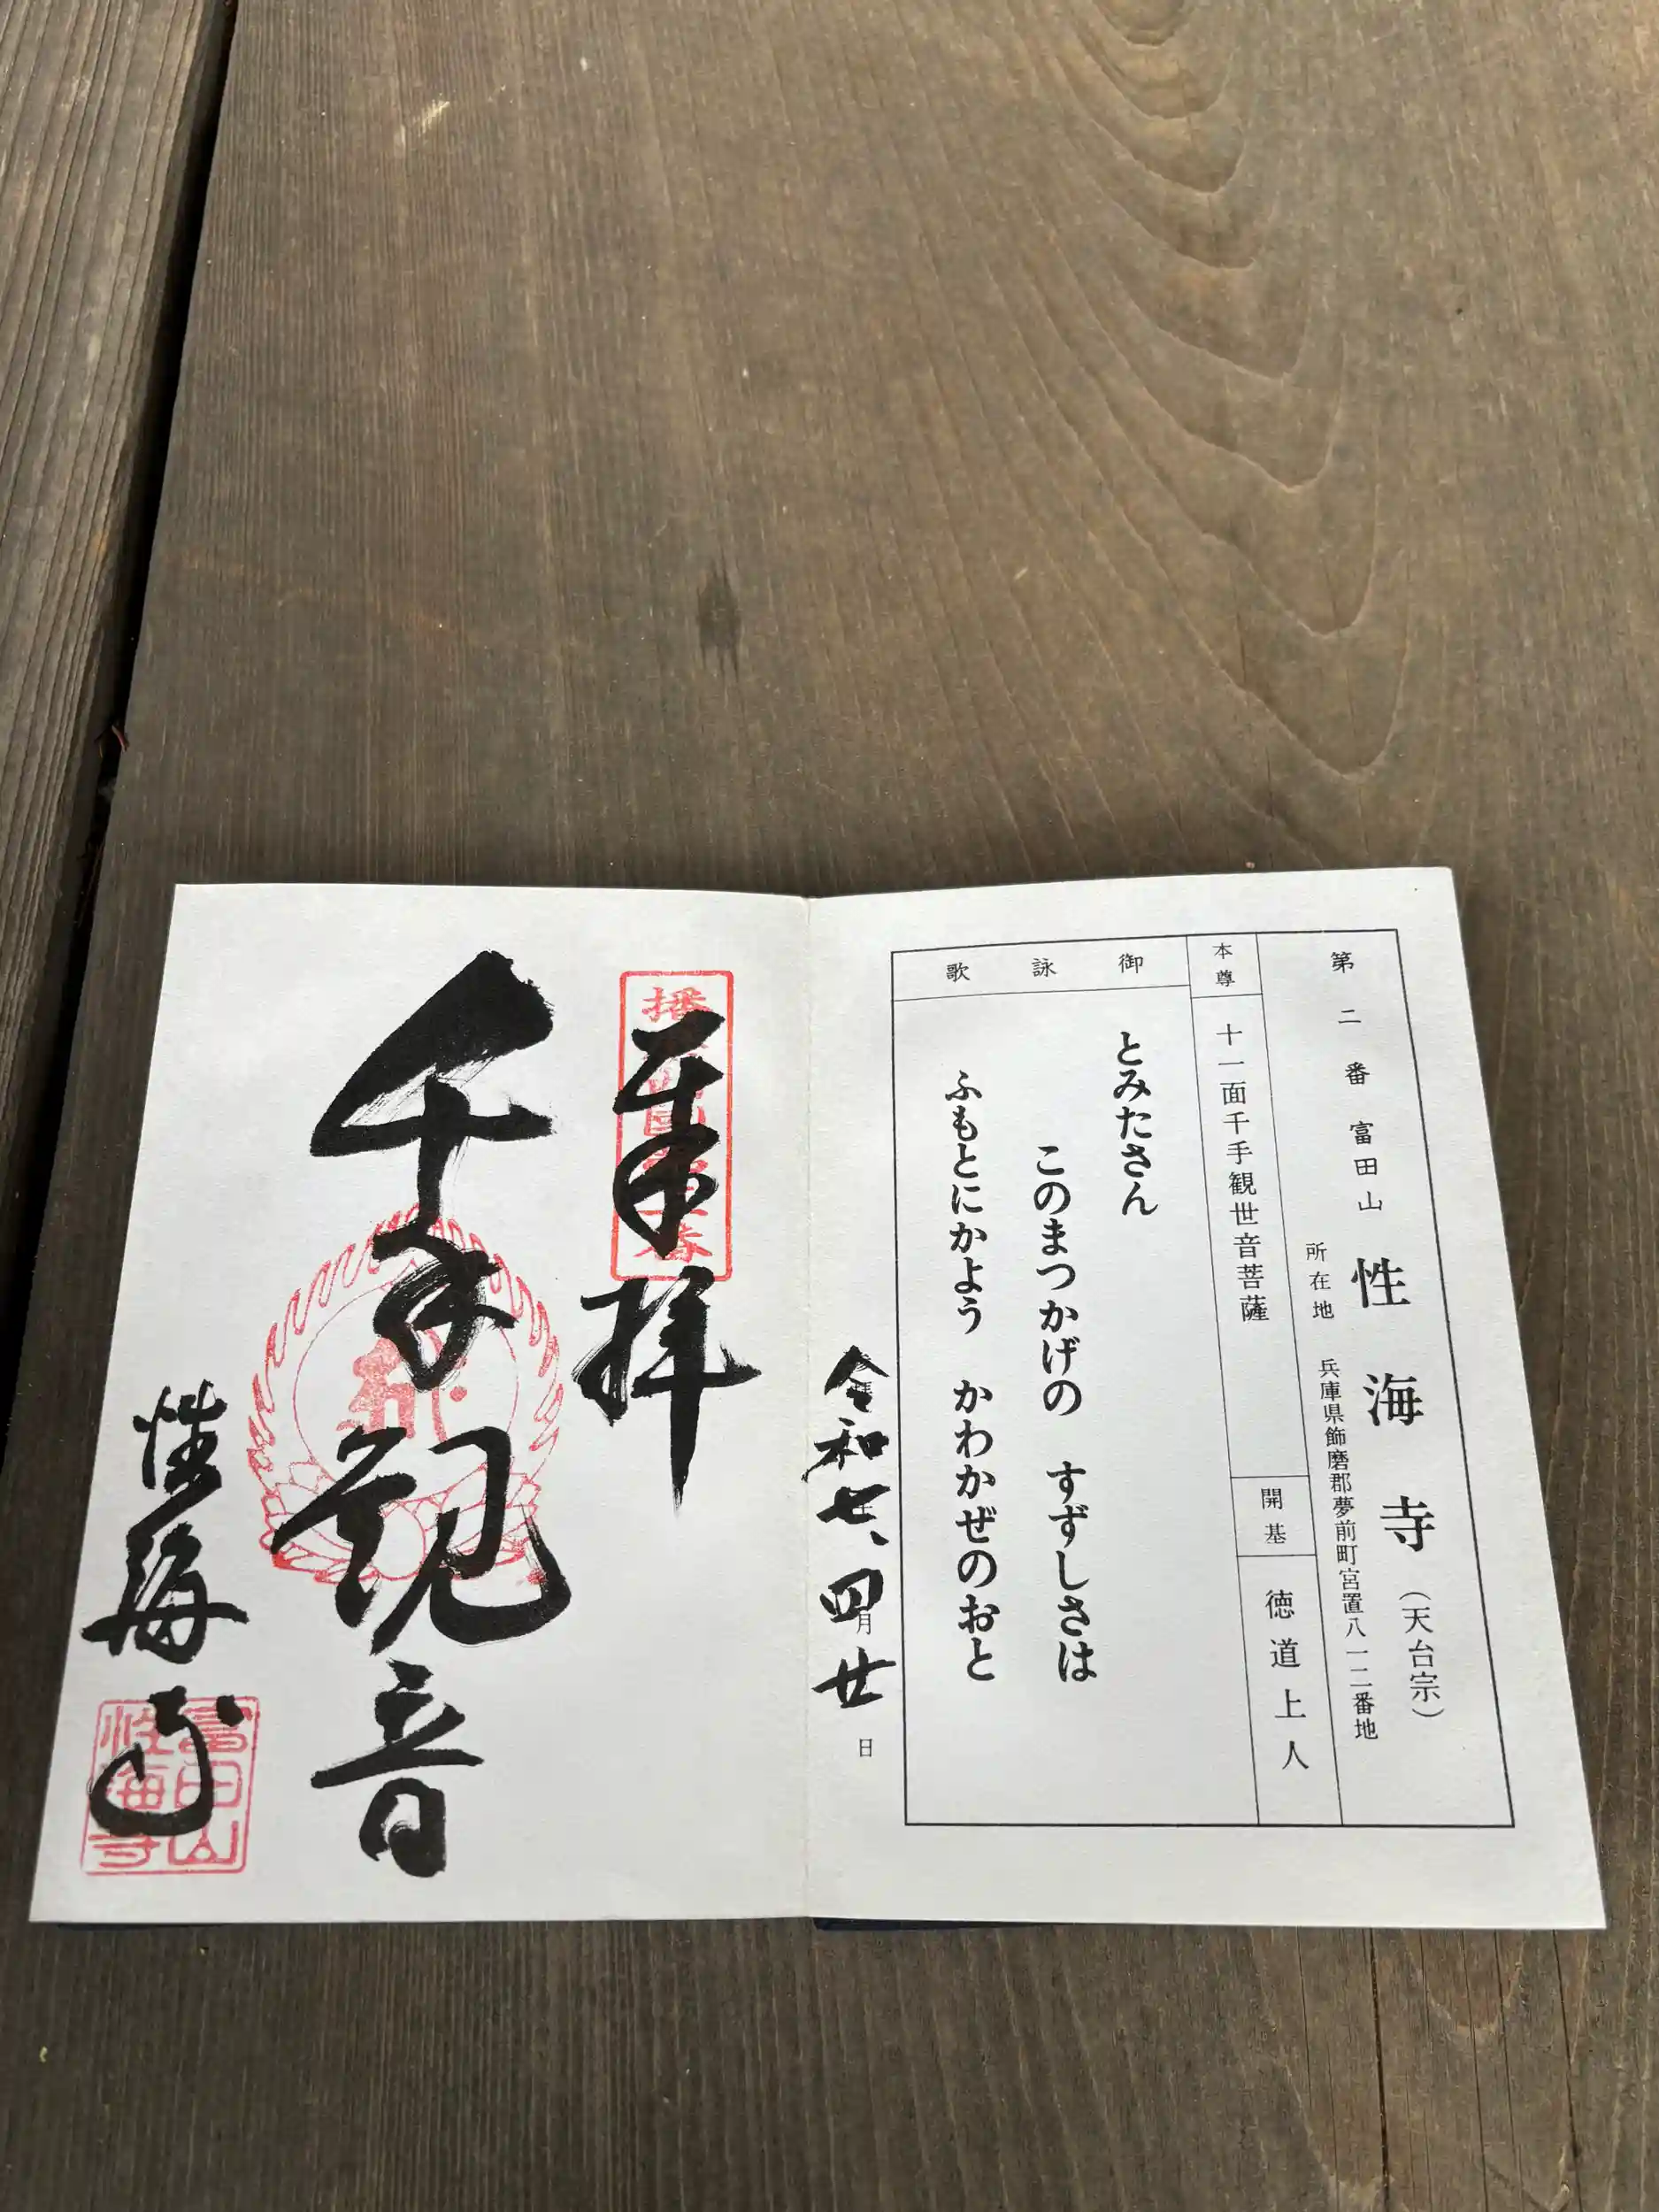 第二番 富田山 性海寺（天台宗）
所在地 兵庫県飾磨郡夢前町宮置八一二番地
本尊 十一面千手観世音菩薩
開基 徳道上人
御詠歌
とみたさん
このまつかげの すずしさは
ふもとにかよう かわかぜのおと
令和七、四月廿日
奉拝
千手観音
性海寺
富田山
性海寺